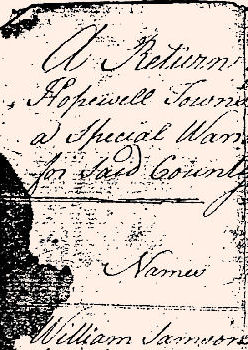 A Return
Hopewell Towns
a Special Warr
for Said County
Names
William Samson